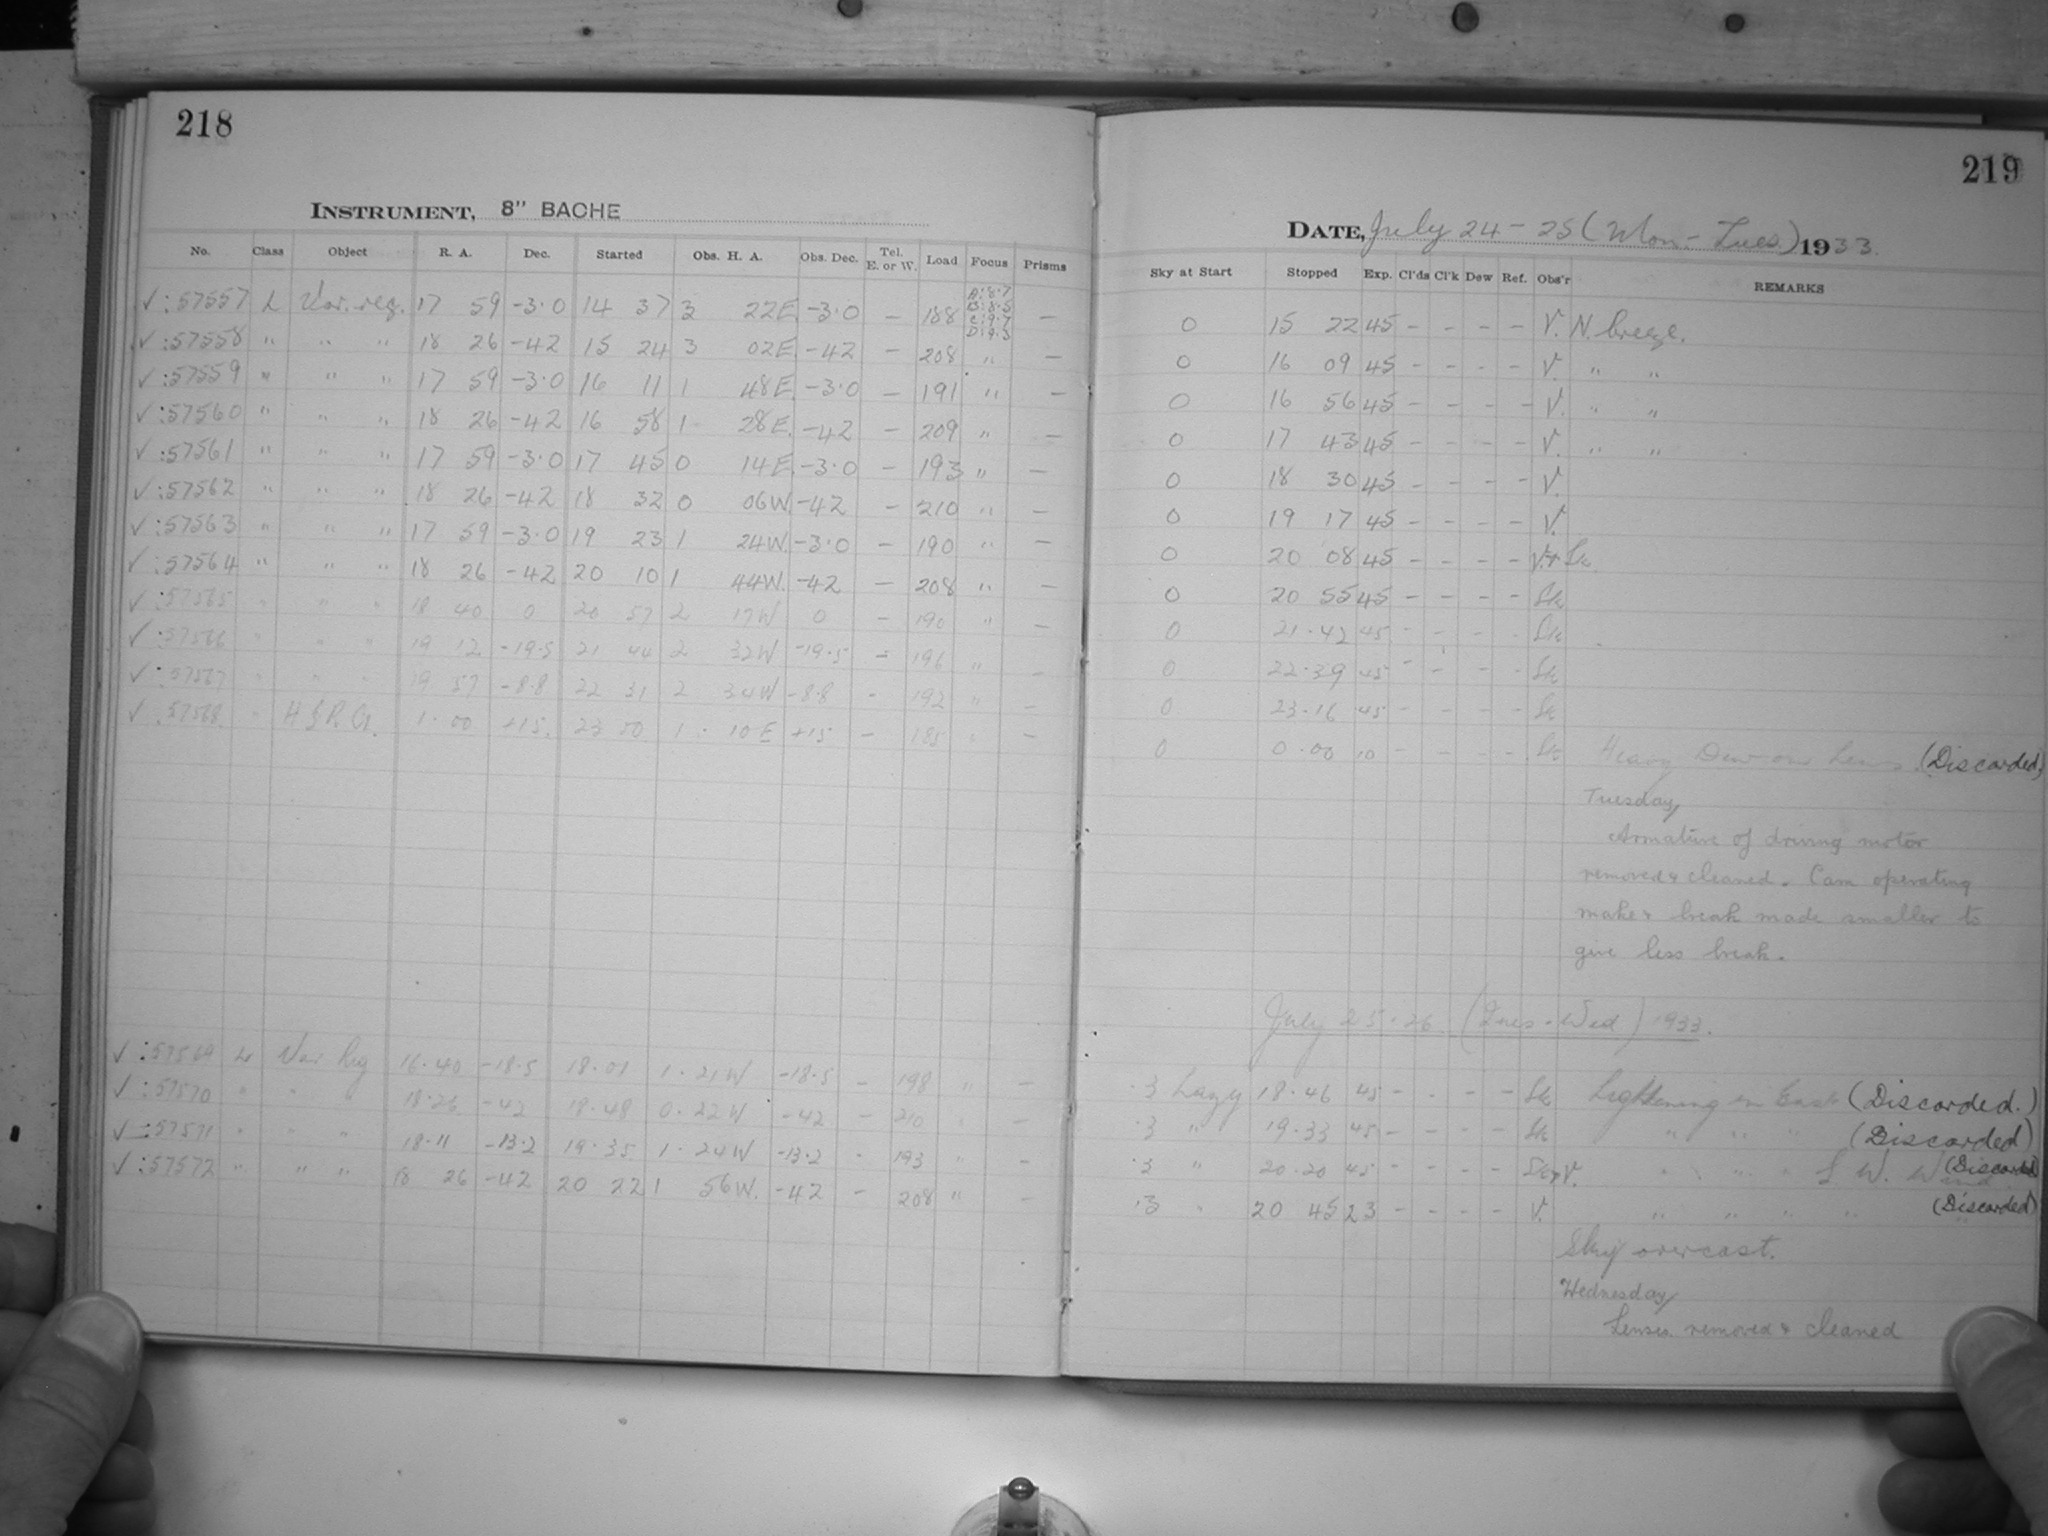 218
INSTRUMENT, 8" BACHE
No. Class Object R. A. Dec. Started Obs. H. A. Obs. Dec. Tel. E. or W. Load Focus Prisms
✓ :57557 L Var. reg. 17 59 -3.0 14 37 3 22E -3.0 – 188 A:8.7 B:8.5 C:9.7 D:9.3 –
✓ :57558 " " " 18 26 -42 15 24 3 02E -42 – 208 " –
✓ :57559 " " " 17 59 -3.0 16 11 1 48E -3.0 – 191 " –
✓ :57560 " " " 18 26 -42 16 58 1 28E. -42 – 209 " –
✓ :57561 " " " 17 59 -3.0 17 45 0 14E -3.0 – 193 " –
✓ :57562 " " " 18 26 -42 18 32 0 06W -42 – 210 " –
✓ :57563 " " " 17 59 -3.0 19 23 1 24W. -3.0 – 190 " –
✓ :57564 " " " 18 26 -42 20 10 1 44W. -42 – 208 " –
✓ :57565 " " " 18 40 0 20 57 2 17W 0 – 190 " –
✓ :57566 " " " 19 12 -19.5 21 44 2 32W -19.5 – 196 " –
✓ :57567 " " " 19 57 -8.8 22 31 2 34W -8.8 – 192 " –
✓ :57568 " 1.00 +15. 23 50 1. 10E +15 – 185 " –
✓ :57569 L Var Reg 16.40 -18.5 18.01 1.21W -18.5 – 198 " –
✓ :57570 " " 18.26 -42 18.48 0.22W -42 – 210 " –
✓ :57571 " " " 18.11 -13.2 19.35 1.24W -13.2 - 193 " –
✓ :57572 " " " 18 26 -42 20 22 1 56W. -42 – 208 " –
219
DATE, July 24-25 (Mon.-Tues.) 1933.
Sky at Start Stopped Exp. Cl'ds Cl'k Dew Ref. Obs'r REMARKS
0 15 22 45 - - - - V. N. breeze.
0 16 09 45 - - - - V. " "
0 16 56 45 - - - - V. " "
0 17 43 45 - - - - V. " "
0 18 30 45 - - - - V.
0 19 17 45 - - - - V.
0 20 08 45 - - - - V.+Sk.
0 20 55 45 - - - - Sk
0 21.42 45 - - - - Sk
0 22.39 45 - - - - Sk
0 23.16 45 - - - - Sk
0 0.00 10 - - - - Sk Heavy Dew on Lens (Discarded.)
Tuesday
Armature of driving motor
removed & cleaned. Cam operating
make & break made smaller to
give less break.
July 25.26. (Tues-Wed) 1933.
.3 Lazy 18.46 45 - - - - Sk Lightning in East (Discarded.)
.3 " 19.33 45 - - - - Sk " " " (Discarded)
.3 " 20.20 45 - - - - Sk+V. " " " S W. Wind (Discarded)
.3 " 20 45 23 - - - - V. " " " " (Discarded)
Sky overcast.
Wednesday
Lenses removed & cleaned